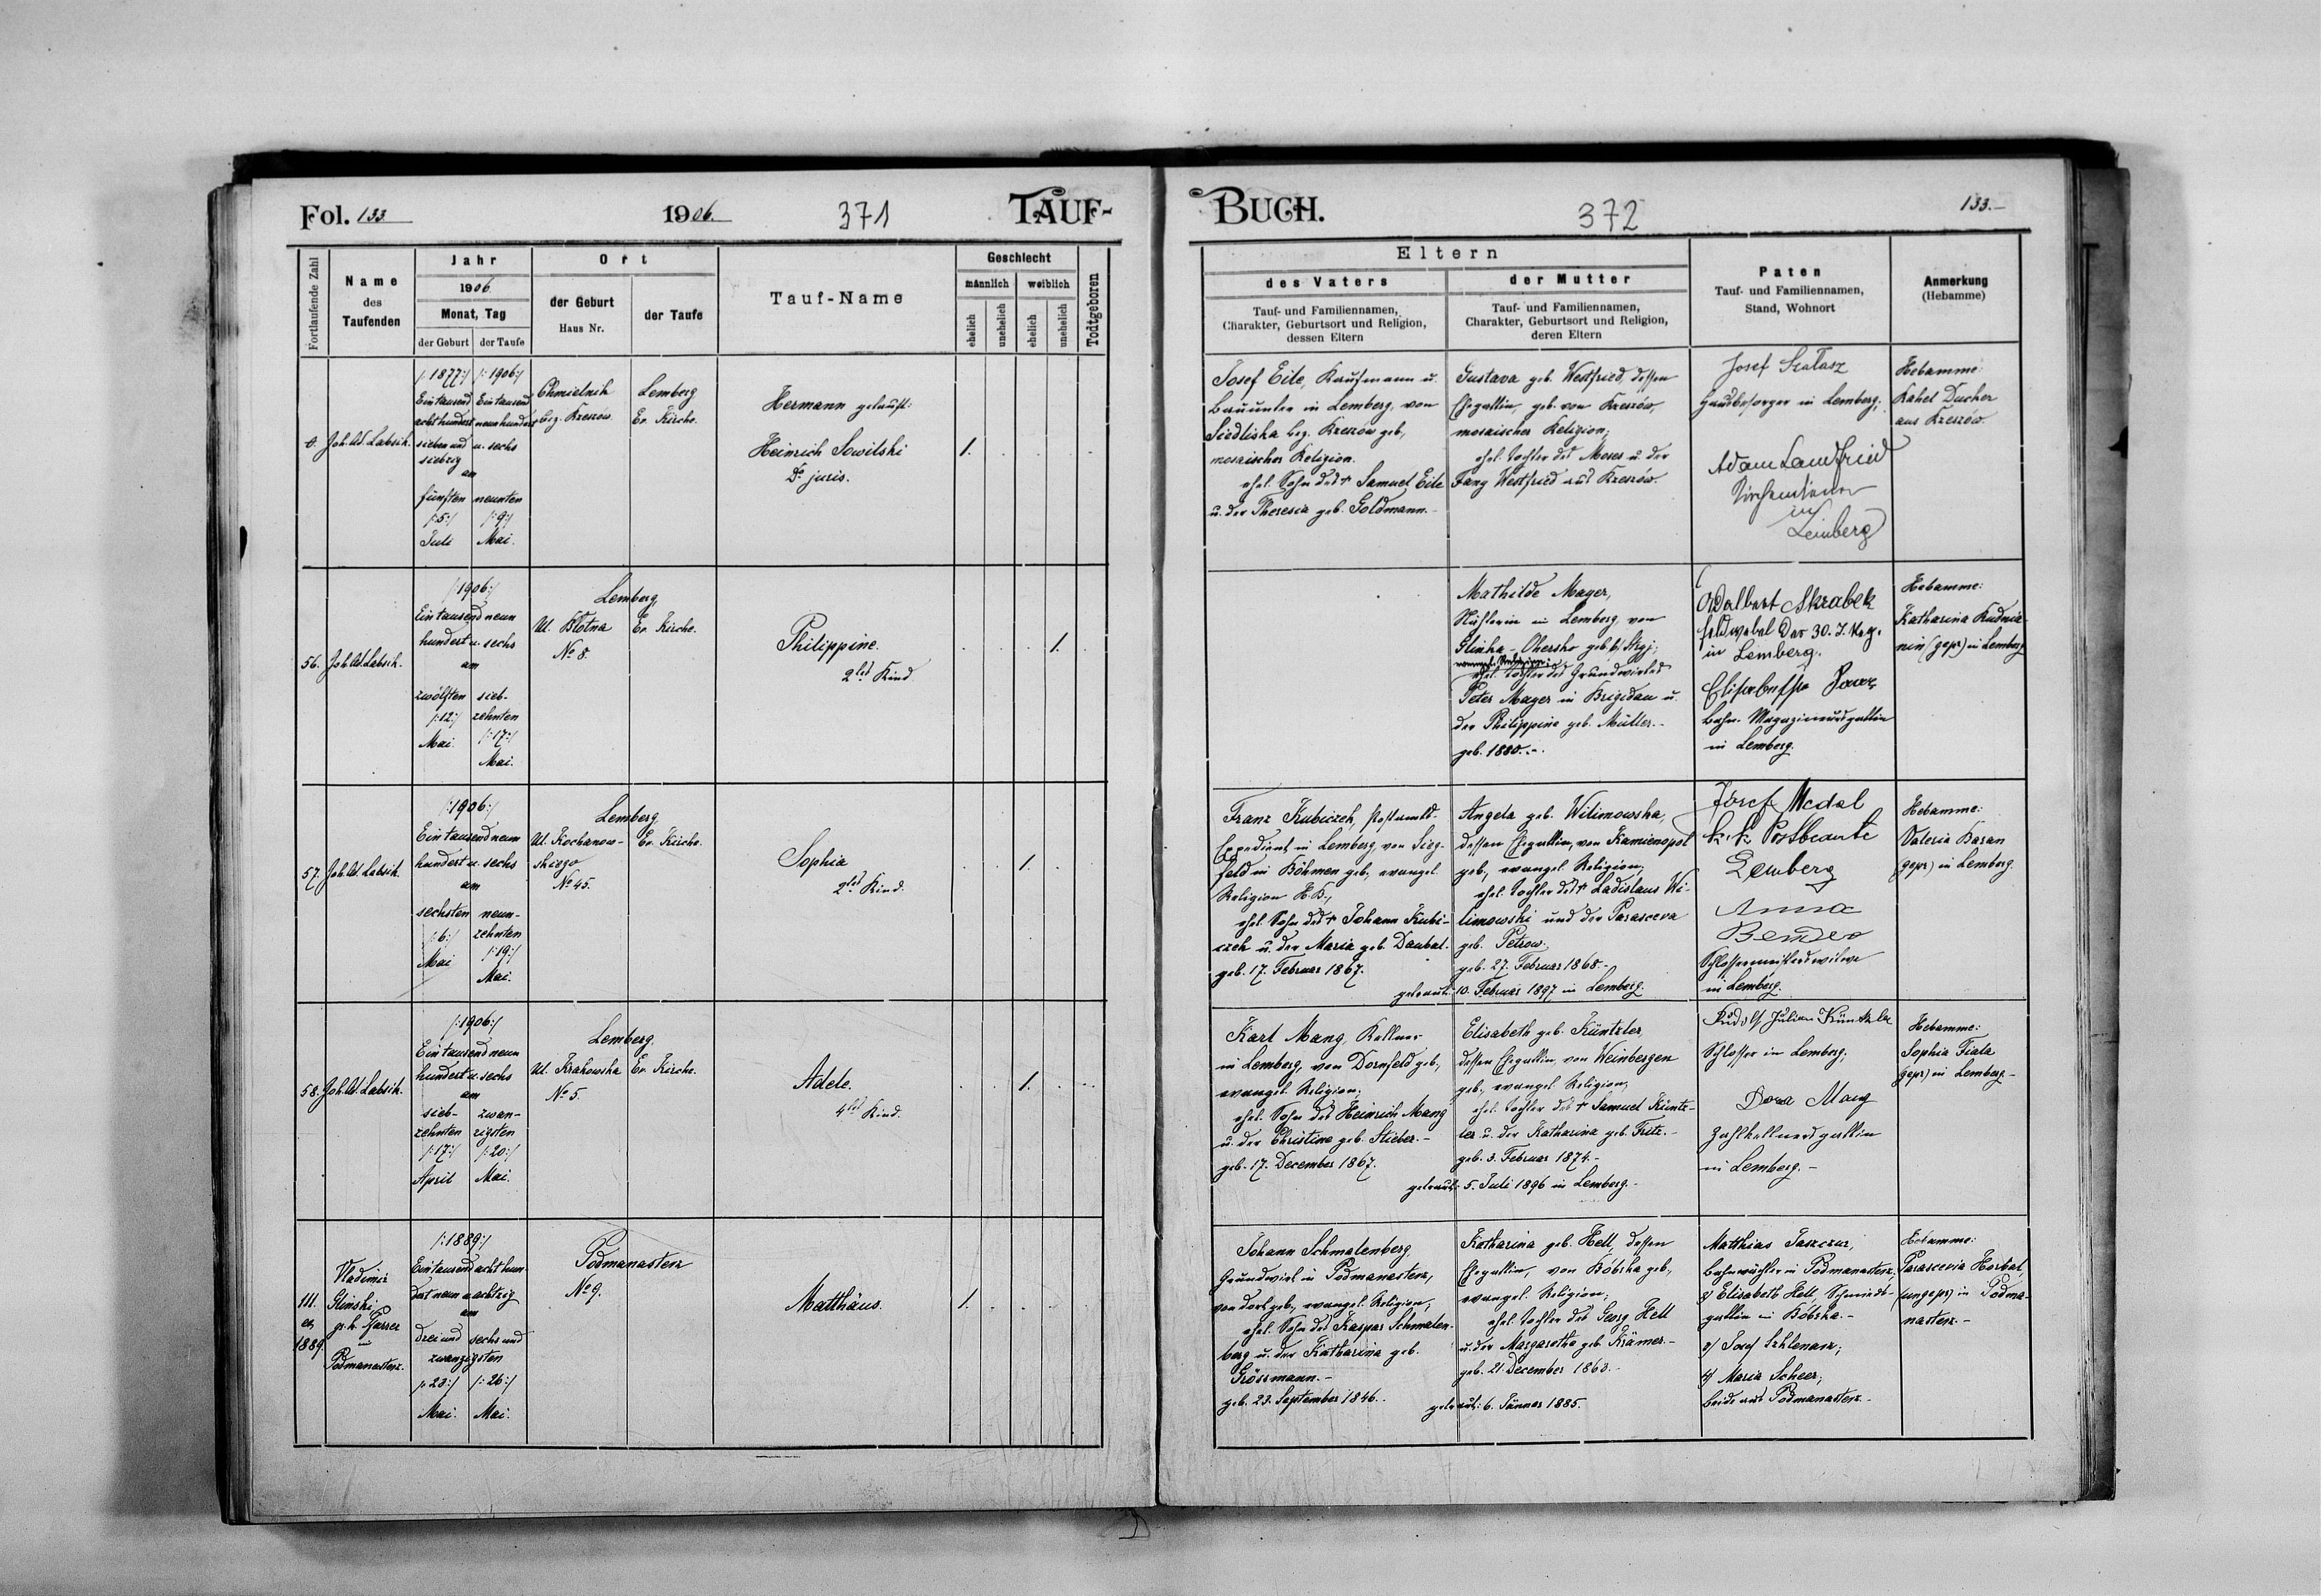 Fol. 133
1906.
371
TAUF-
Fortlaufende Zahl
Name
des
Taufenden
Jahr
1906
Monat, Tag
der Geburt
der Taufe
Ort
der Geburt
Haus Nr.
der Taufe
Tauf-Name
Geschlecht
männlich
weiblich
ehelich
unehelich
ehelich
unehelich
Todtgeboren
Joh. Ad. Labsik.
/:1877:/
Eintausend
achthundert
sieben und
siebzig
am
fünften
/:5:/
Juli
/:1906:/
Eintausend
neunhundert
u. sechs
neunten
/:9:/
Mai.
Chmielnik
bez. Kreszów
Lemberg
Ev. Kirche.
Hermann getauft:
Heinrich Sowilski
Dr juris.
1.
56.
Joh. Ad. Labsik.
/:1906:/
Eintausend neun
hundert u. sechs
am
zwölften
/:12:/
Mai.
sieb-
zehnten
/:17:/
Mai.
Lemberg
Ul. Blotna
No 8.
Ev. Kirche.
Philippine.
2tes Kind
1.
57.
Joh. Ad. Labsik.
/:1906:/
Eintausend neun
hundert u. sechs
am
sechsten
/:6:/
Mai
neun-
zehnten
/:19:/
Mai.
Lemberg
Ul. Kochanow-
skiego
No 45.
Ev. Kirche.
Sophia
2tes Kind.
1.
58.
Joh. Ad. Labsik.
/:1906:/
Eintausend neun
hundert u. sechs
am
sieb-
zehnten
/:17:/
April
zwan-
zigsten
/:20:/
Mai.
Lemberg.
Ul. Krakowska
No 5.
Ev. Kirche.
Adele.
4tes Kind.
1.
111.
ex
1889
Vladimir
Slinski
gr. k. Pfarrer
in
Podmanasterz.
/:1889:/
Eintausend acht hun-
dert neun u. achtzig
am
drei und
sechs und
zwanzigsten
/:23:/
Mai.
/:26:/
Mai.
Podmanasterz
No 9.
Matthäus.
1.
BUCH.
372
133.-
Eltern
des Vaters
Tauf- und Familiennamen,
Charakter, Geburtsort und Religion,
dessen Eltern
der Mutter
Tauf- und Familiennamen,
Charakter, Geburtsort und Religion,
deren Eltern
Paten
Tauf- und Familiennamen,
Stand, Wohnort
Anmerkung
(Hebamme)
Josef Eile, Kaufmann u.
in Lemberg, von
Siedliska bez. Kreszów geb.,
mosaischer Religion.
ehel. Sohn des † Samuel Eile
u. der Theresia geb. Goldmann.-
Gustava geb. Westfried, dessen
Ehegattin, geb. von Kreszów,
mosaischer Religion;
ehel. Tochter des Moses u. der
Fany Westfried aus Kreszów.
Josef Szałasz
Hausbesorger in Lemberg;
Adam Landfried
Kirchendiener
in
Lemberg
Hebamme:
Rahel Ducher
aus Kreszów.
Mathilde Mayer,
in Lemberg von
geb. b/ Stryj;
evangel. Religion;
ehel. Tochter des Grundwirtes
Peter Mayer in Brigidau u.
der Philippine geb. Müller.-
geb. 1880.-.
Adalbert Skrabek
Feldwebel des 30. J. Reg.
in Lemberg.
Elisabetha
Bahn-Magazineursgattin
in Lemberg.
Hebamme:
Katharina Kudnia-
nin (gepr.) in Lemberg
Franz Kubiczek, Postamts-
Expedient in Lemberg, von Sieg-
feld in Böhmen geb., evangel.
Religion H.B.,
ehel. Sohn des † Johann Kubi-
czek u. der Maria geb. Daubal.-
geb. 17. Februar 1867.
Angela geb. Wilimowska,
dessen Ehegattin, von Kamienopol
geb., evangel. Religion;
ehel. Tochter des † Ladislaus Wi-
limowski und der Parasceva
geb. Petrow.
geb. 27. Februar 1868.-
getraut: 10. Februar 1897 in Lemberg.
Józef Medal
k. k. Postbeamte
Lemberg
Anna
Bender
Schlossermeisterswitwe
in Lemberg.
Hebamme:
Valeria Baran
(gepr.) in Lemberg.
Karl Mang, Kellner
in Lemberg, von Dornfeld geb.,
evangel. Religion;
ehel. Sohn des Heinrich Mang
u. der Christine geb. Stieber.-
geb. 17. December 1867.
Elisabeth geb. Küntzler,
dessen Ehegattin von Weinbergen
geb., evangel. Religion;
ehel. Tochter des † Samuel Küntz-
ler u. der Katharina geb. Fritz.-
geb. 3. Februar 1874.-
getraut: 5. Juli 1896 in Lemberg.-
Rudolf Julian Küntzler
Schlosser in Lemberg;
Dora Mang
Zahlkellnersgattin
in Lemberg.-
Hebamme:
Sophia Fiala
(gepr.) in Lemberg.-
Johann Schmalenberg,
Grundwirt in Podmanasterz,
von dort geb., evangel. Religion,
ehel. Sohn des Kaspar Schmalen-
berg u. der Katharina geb.
Grössmann.-
geb. 23. September 1846.
Katharina geb. Hell, dessen
Ehegattin, von Bóbrka geb.,
evangel. Religion;
ehel. Tochter des Georg Hell
u. der Margaretha geb. Krämer.-
geb. 21. December 1863.-
getraut: 6. Jänner 1885.
Matthias Jaszczur,
Bahnwächter in Podmanasterz,
2/ Elisabeth Hell, Schmieds-
gattin in Bóbrka.-
3/ Josef Szklenarz;
4/ Maria Scheer;
beide aus Podmanasterz.-
Hebamme:
Parascevia Horbal
(ungepr.) in Podma-
nasterz.-